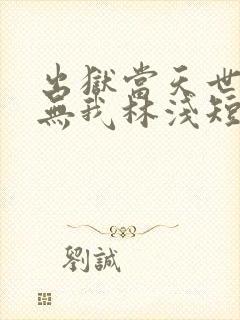 出獄當天世
無我林淺短
劉誠